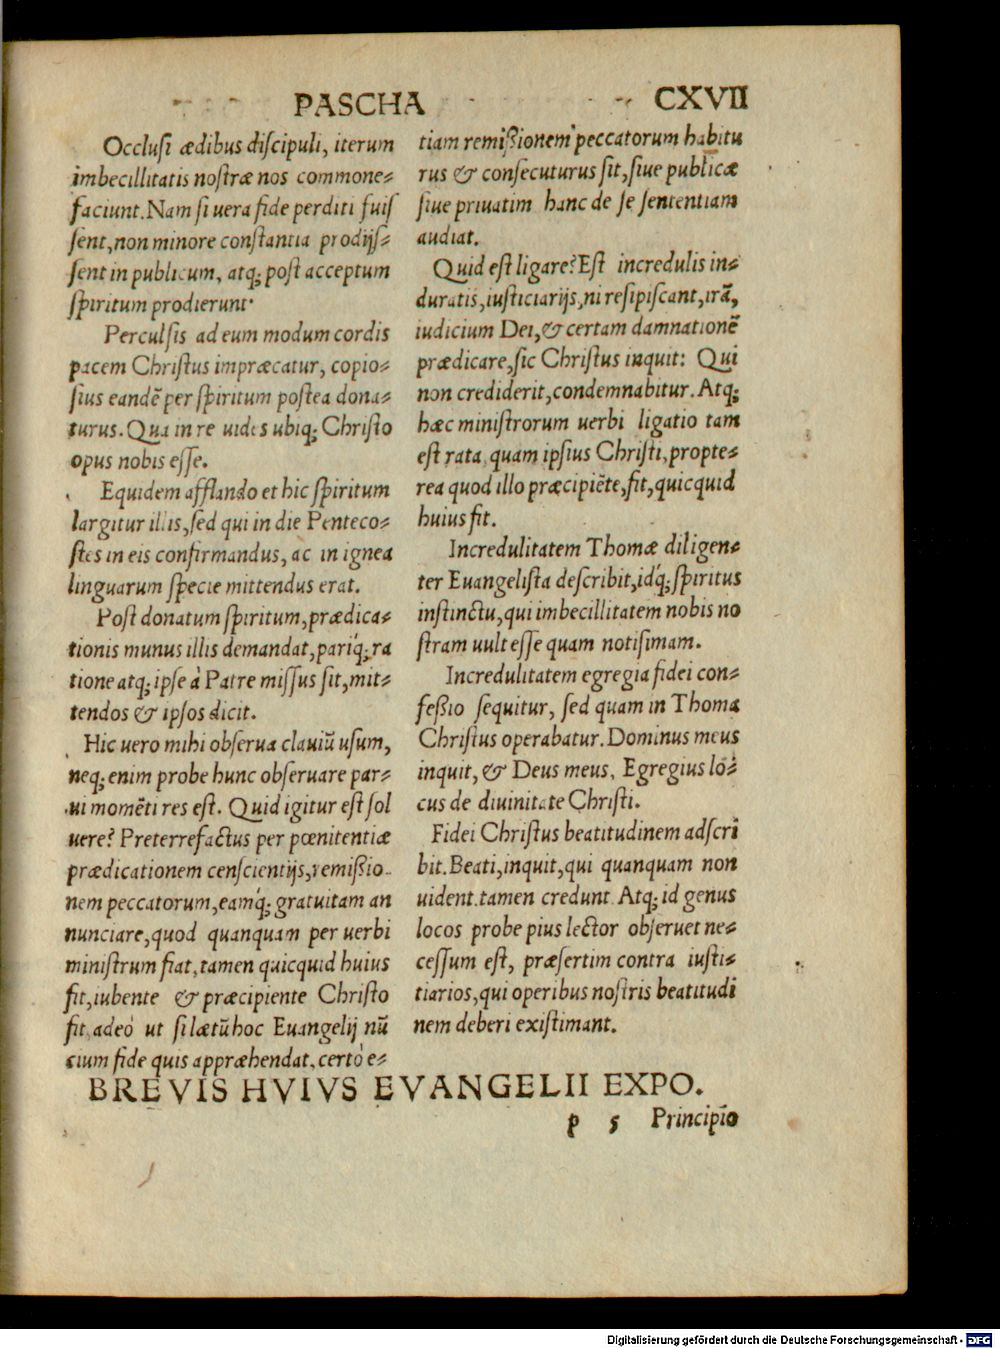 PASCHA CXVII
Occlusi ædibus discipuli, iterum
imbecillitatis nostræ nos commone=
faciunt. Nam si uera fide perditi fuis
sent, non minore constantia prodijs=
sent in publicum, atq; post acceptum
spiritum prodierunt.
Perculsis ad eum modum cordis
pacem Christus impræcatur, copio=
sius eandē per spiritum postea dona=
turus. Qua in re uides ubiq; Christo
opus nobis esse.
Equidem afflando et hic spiritum
largitur illis, sed qui in die Penteco=
stes in eis confirmandus, ac in ignea
linguarum specie mittendus erat.
Post donatum spiritum, prædica=
tionis munus illis demandat, pariq́; ra
tione atq; ipse à Patre missus sit, mit=
tendos & ipsos dicit.
Hic uero mihi obserua clauiū usum,
neq; enim probe hunc obseruare par=
ui momēti res est. Quid igitur est sol
uere? Preterrefactus per pœnitentiæ
prædicationem censcientijs, remißio=
nem peccatorum, eamq́; gratuitam an
nunciare, quod quanquam per uerbi
ministrum fiat, tamen quicquid huius
fit, iubente & præcipiente Christo
fit, adeò ut si lætū hoc Euangelij nū
cium fide quis appræhendat, certò e=
tiam remißionem peccatorum habitu
rus & consecuturus sit, siue publicæ
siue priuatim hanc de se sententiam
audiat.
Quid est ligare? Est incredulis in=
duratis, iusticiarijs, ni resipiscant, irā,
iudicium Dei, & certam damnationē
prædicare, sic Christus inquit: Qui
non crediderit, condemnabitur. Atq;
hæc ministrorum uerbi ligatio tam
est rata, quam ipsius Christi, propte=
rea quod illo præcipiēte, fit, quicquid
huius fit.
Incredulitatem Thomæ diligen=
ter Euangelista describit, idq́; spiritus
instinctu, qui imbecillitatem nobis no
stram uult esse quam notisimam.
Incredulitatem egregia fidei con=
feßio sequitur, sed quam in Thoma
Christus operabatur. Dominus meus
inquit, & Deus meus, Egregius lo=
cus de diuinitate Christi.
Fidei Christus beatitudinem adscri
bit. Beati, inquit, qui quanquam non
uident. tamen credunt. Atq; id genus
locos probe pius lector obseruet ne=
cessum est, præsertim contra iusti=
tiarios, qui operibus nostris beatitudi
nem deberi existimant.
BREVIS HVIVS EVANGELII EXPO.
p 5 Principio
Digitalisierung gefördert durch die Deutsche Forschungsgemeinschaft - DFG